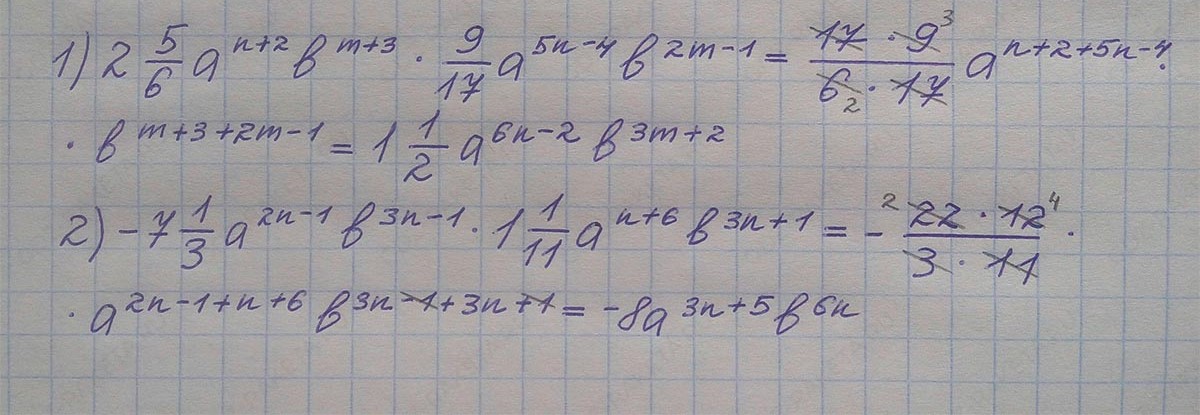 1) 2 5/6 a^{n+2} b^{m+3} · 9/17 a^{5n-4} b^{2m-1} = (17 · 9^3)/(6_2 · 17) a^{n+2+5n-4} ·
· b^{m+3+2m-1} = 1 1/2 a^{6n-2} b^{3m+2}
2) -7 1/3 a^{2n-1} b^{3n-1} · 1 1/11 a^{n+6} b^{3n+1} = - (^2 22 · 12^4)/(3 · 11) ·
· a^{2n-1+n+6} b^{3n-1+3n+1} = -8a^{3n+5} b^{6n}